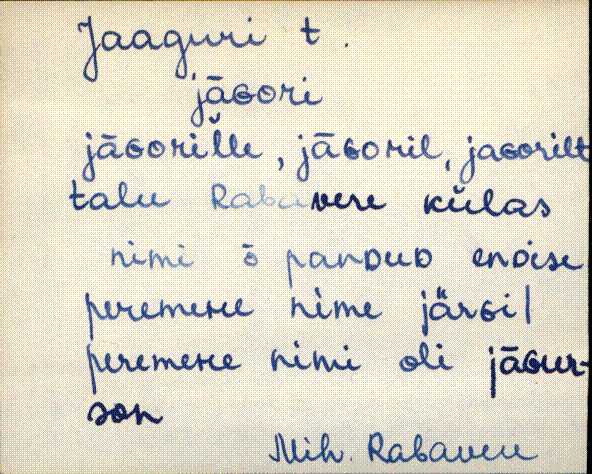 Jaaguri t.
jāɢori
jāɢorĭlle, jāɢoril, jaɢorilt
talu Rabavere külas
nimi ō panDuD enDise
peremeHe nime järɢi |
peremeHe nimi oli jāɢur-
son
Mih. Rabavere